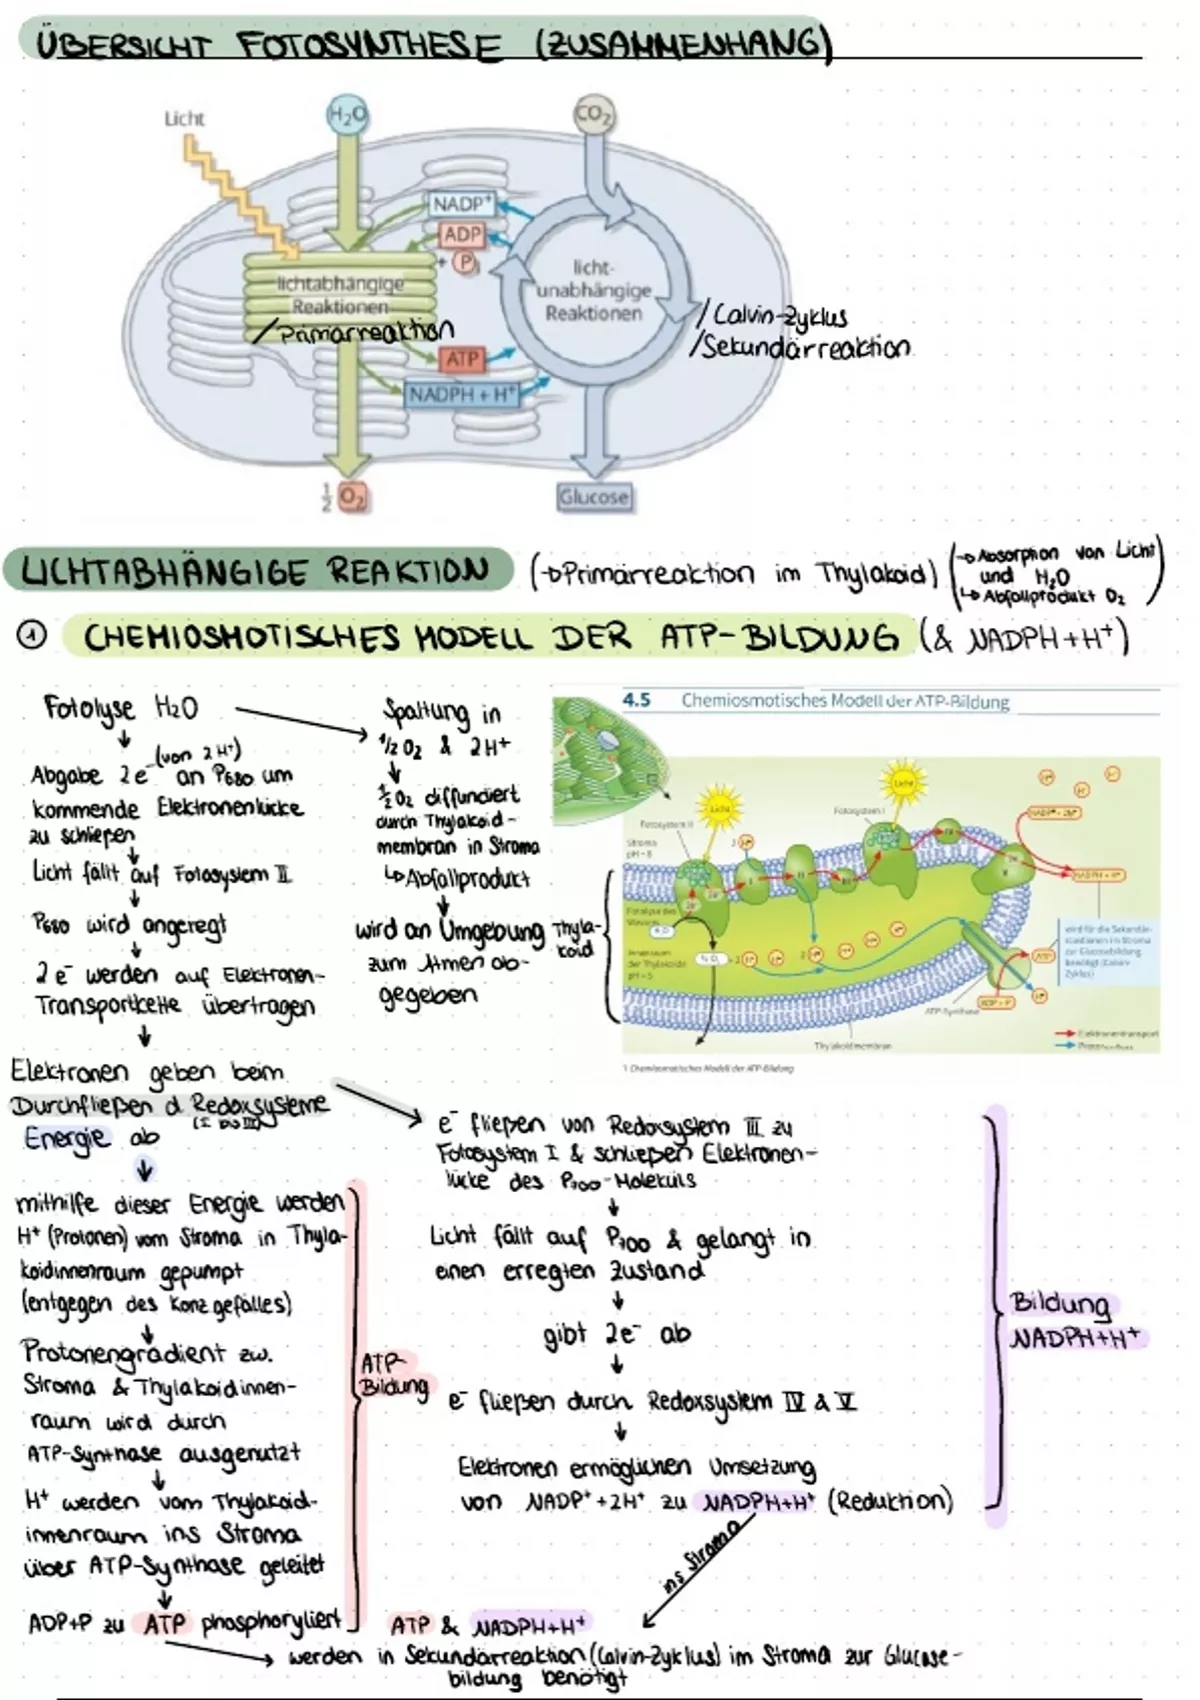 ÜBERSICHT FOTOSYNTHESE (ZUSAMMENHANG)
Licht
H₂O
CO₂
NADP⁺
ADP
+ P
lichtabhängige
Reaktionen
/Primärreaktion
licht-
unabhängige
Reaktionen
/Calvin-Zyklus
/Sekundärreaktion
ATP
NADPH + H⁺
½ O₂
Glucose
LICHTABHÄNGIGE REAKTION (→Primärreaktion im Thylakoid)
(→ Absorption von Licht
und H₂O
↳ Abfallprodukt O₂)
① CHEMIOSMOTISCHES MODELL DER ATP-BILDUNG (& NADPH+H⁺)
Fotolyse H₂O
↓
(von 2 H⁺)
Abgabe 2e⁻ an P680 um
kommende Elektronenlücke
zu schließen
↓
Licht fällt auf Fotosystem II
↓
P680 wird angeregt
↓
2 e⁻ werden auf Elektronen-
Transportkette übertragen
↓
Elektronen geben beim
Durchfließen d. Redoxsysteme
(I bis III)
Energie ab
↓
mithilfe dieser Energie werden
H⁺ (Protonen) vom Stroma in Thyla-
koidinnenraum gepumpt
(entgegen des Konz.gefälles)
↓
Protonengradient zw.
Stroma & Thylakoidinnen-
raum wird durch
ATP-Synthase ausgenutzt
↓
H⁺ werden vom Thylakoid-
innenraum ins Stroma
über ATP-Synthase geleitet
↓
ADP+P zu ATP phosphoryliert
ATP-
Bildung
Spaltung in
1/2 O₂ & 2H⁺
↓
½ O₂ diffundiert
durch Thylakoid-
membran in Stroma
↳ Abfallprodukt
↓
wird an Umgebung
zum Atmen ab-
gegeben
Thyla-
koid
4.5 Chemiosmotisches Modell der ATP-Bildung
Licht
Licht
Fotosystem II
Fotosystem I
Stroma
pH ≈ 8
Fotolyse des
Wassers
Innenraum
der Thylakoide
pH ≈ 5
NADP⁺ + 2H⁺
NADPH + H⁺
wird für die Sekundär-
reaktionen im Stroma
zur Glucosebildung
benötigt (Calvin-
Zyklus)
ATP
ADP + P
ATP-Synthase
Thylakoidmembran
Elektronentransport
Protonenfluss
1 Chemiosmotisches Modell der ATP-Bildung
e⁻ fließen von Redoxsystem III zu
Fotosystem I & schließen Elektronen-
lücke des P700-Moleküls
↓
Licht fällt auf P700 & gelangt in
einen erregten Zustand
↓
gibt 2e⁻ ab
↓
e⁻ fließen durch Redoxsystem IV & V
↓
Elektronen ermöglichen Umsetzung
von NADP⁺+2H⁺ zu NADPH+H⁺ (Reduktion)
Bildung
NADPH+H⁺
ins Stroma
ATP & NADPH+H⁺
werden in Sekundärreaktion (Calvin-Zyklus) im Stroma zur Glucose-
bildung benötigt